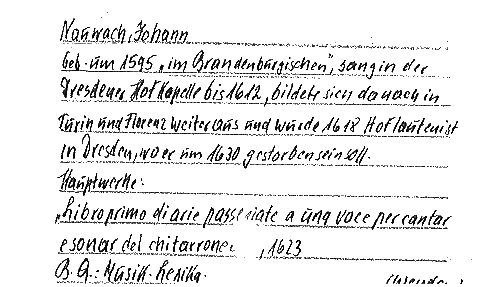 Nauwach, Johann
geb. um 1595 „im Brandenburgischen", sang in der
Dresdener Hofkapelle bis 1612, bildete sich danach in
Turin und Florenz weiter aus und wurde 1618 Hoflautenist
in Dresden, wo er um 1630 gestorben sein soll.
Hauptwerke:
„Libro primo di arie passegiate a una voce per cantar
e sonar del chitarrone , 1623
B. Q.: Musik-Lexika.